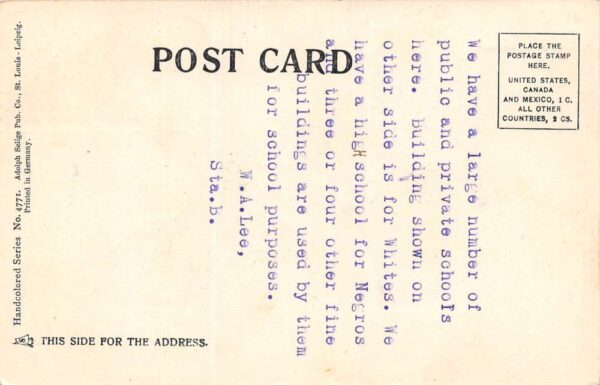 POST CARD
PLACE THE
POSTAGE STAMP
HERE.
UNITED STATES,
CANADA
AND MEXICO, 1 C.
ALL OTHER
COUNTRIES, 2 CS.
We have a large number of
public and private schools
here. building shown on
other side is for Whites. We
have a high school for Negros
and three or four other fine
buildings are used by them
for school purposes.
W.A.Lee,
Sta.b.
Handcolored Series No. 4771. Adolph Selige Pub. Co., St. Louis - Leipzig.
Printed in Germany.
THIS SIDE FOR THE ADDRESS.